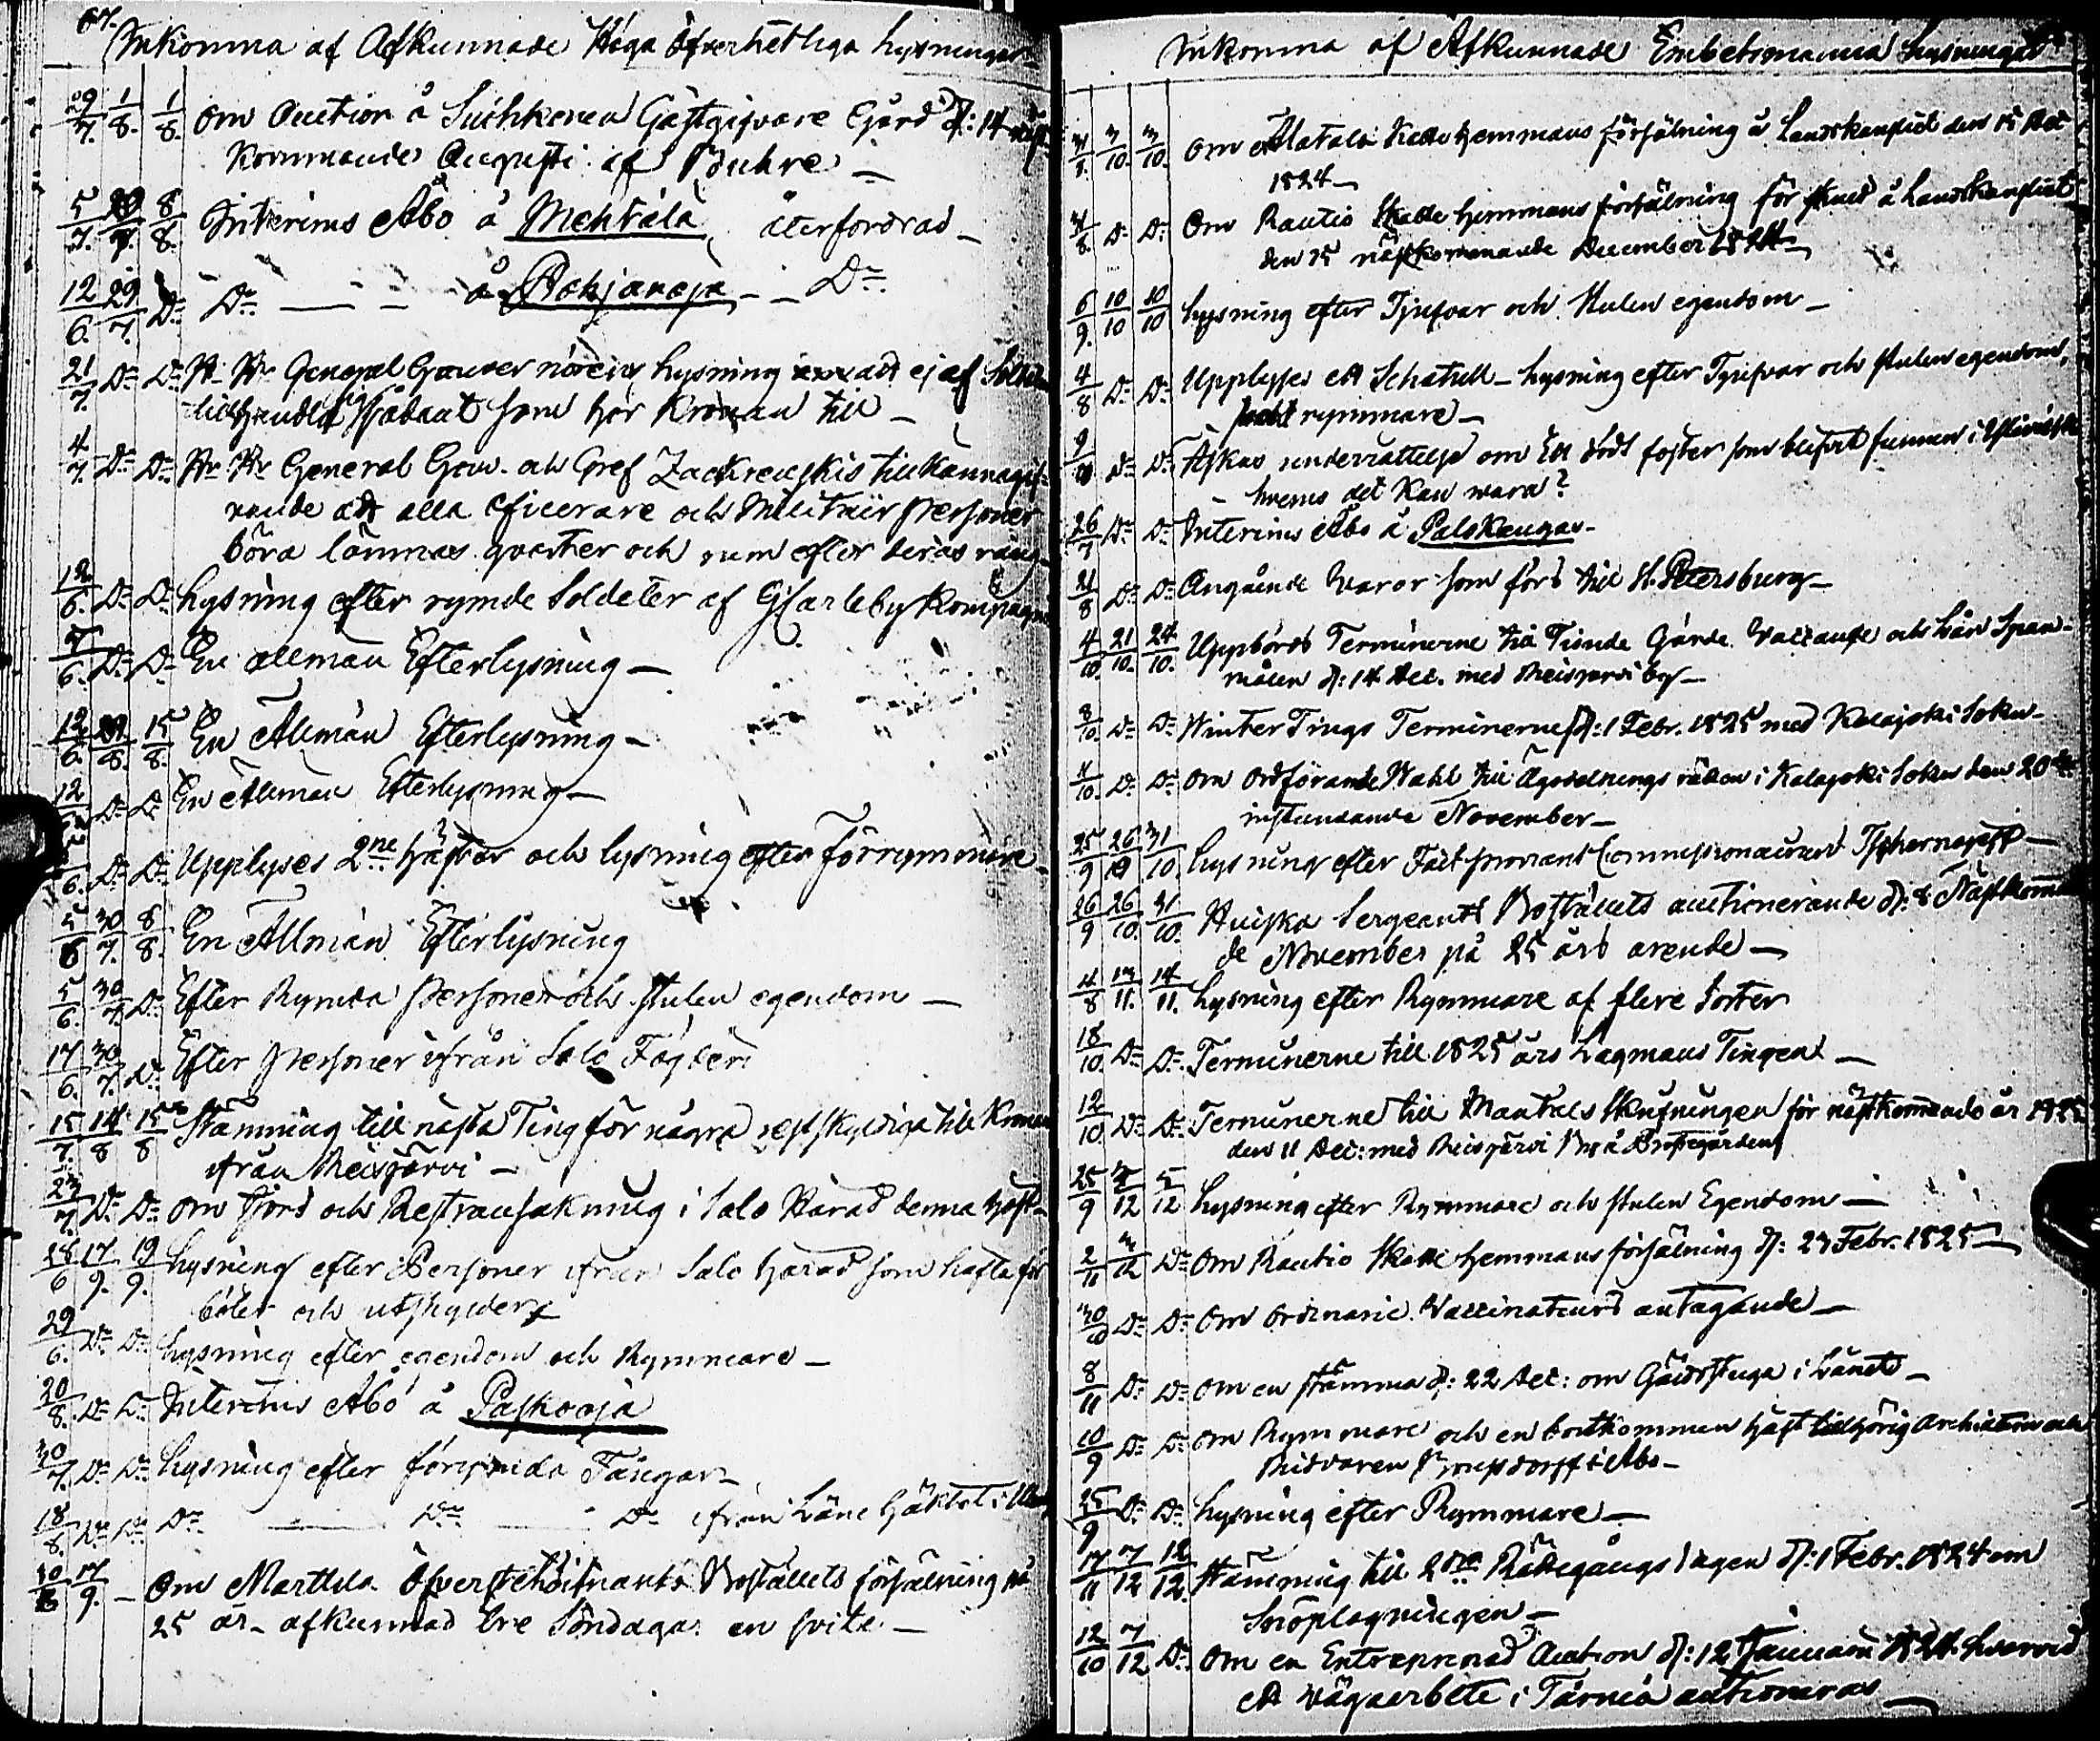 67.
Inkomna af Afkunnade Höga Öfverhetliga lysningar
29/7. 1/8. 1/8. Om Auction å Gästgifvare Gård d: 14
Kommande Augusti af
5/7. 8/8. Interims Åbo å Mehtälä återfordrad –
12/6. 29/7. Do Do — — å Pohjanoja – – Do
21/7. Do Do Hr General lysning att ej af
sådant som hör Kronan till –
4/7. Do Do Hr Hr General Gouv. och Gref Zackrewskis tillkännagif-
vande att alla officerare och Militair Personer
böra lämnas qvarter och rum efter deras rang
12/6. Do Do Lysning efter rymde Soldater af GCarleby Kompagni
5/6. Do Do En allmän Efterlysning –
12/6. 15/8. En Allmän Efterlysning –
12 Do Do En Allmän Efterlysning –
6. Do Do Upplyses 2ne hästar och lysning efter förrymmare
5/6 30/7. 8/8. En Allmän Efterlysning
5/6. 30/7. Do Efter Rymda Personer och stulen egendom –
17/6. 30/7. Do Efter Personer ifrån Salo Fögderi
15/7. 14/8 15/8 Stämning till nästa Ting för några restskyldiga till Kronan
ifrån Reisjärvi –
23/7. Do Do Om Jord och Restransakning i Salo Härad denna höst
28/6 17/9. 19/9. Lysning efter Personer ifrån Salo Härad som häfta för
böter och utskylder
29/6. Do Do Lysning efter egendom och Rymmare –
20/8. Do Do Interims Åbo å Paskooja
30/7. Do Do Lysning efter förrymda Fångar –
18/8. Do Do Do — Do — Do ifrån Läne Häktet i
10/8 17/9. – Om Marttila Öfverstelöitnants Boställets försälning på
25 år – afkunnad tre Söndagar en svite –
Inkomna af Afkunnade Embetsmanna Lysningar
3/10. 3/10. Om Alatalo Skatte Hemmans försälning å Landskansliet den 15 Dec
1824 –
Do Do Om Rautio Skatte Hemmans försälning för å Landskansliet
den 15 nästkommande December 1824 –
6/9. 10/10 10/10 Lysning efter Tjufvar och stulen egendom –
4/8 Do Do Upplyses ett Schatull – lysning efter Tjufvar och stulen egendom,
samt rymmare –
Do Do Äskas underrättelse om Ett dödt foster som blifvit funnen i
– hvems det kan vara?
26/7 Do Do Interims Åbo å Palokangas –
21/8 Do Do Angående Varor som förs till St. Petersburg –
4/10. 21/10. 24/10. Uppbörds Terminerne till Tionde Gärde och Lån Span-
målen d: 14 Dec. med Reisjärvi by –
8/10. Do Do Winter Tings Terminerne d: 1 Febr. 1825 med Kalajoki Sokn –
4/10. Do Do Om Ordförande Wahl till Ägodelnings rätten i Kalajoki Sokn den 20de
instundande November –
25/9 26/10 31/10. Lysning efter Fält proviant Commissionairen
26/9 26/10. 31/10. Sergeants Boställets auctionerande d: 8 Nästkomman
de November på 25 års arende –
4/8 13/11. 14/11. Lysning efter Rymmare af flere sorter
18/10. Do Do Terminerne till 1825 års Lagmans Tingen –
12/10 Do Do Terminerne till Mantals Skrifningen för nästkommande år 1825
den 11 Dec: med Reisjärvi by å Prostegården
25/9 5/12 5/12 Lysning efter Rymmare och stulen Egendom –
2/11 3/12 Do Om Rautio Skatte Hemmans försälning d: 23 Febr. 1825 –
30/10 Do Do Om Ordinarie Vaccinateurs antagande –
8/11 Do Do Om en stämma d: 22 Dec: om i Länet –
10/9 Do Do Om Rymmare och en bortkommen häst tillhörig Architecten och
Riddaren i Åbo –
25/9 Do Do Lysning efter Rymmare –
17/11 7/12 12/12. Stämning till 2dra Rättegångs dagen d: 1 Febr. 1824 om
Snöplogningen –
12/10 7/12 Do Om en Entreprenad Auction d: 12 Januari 1824. hvarvid
ett vägaerbete i Tärneå auctioneras